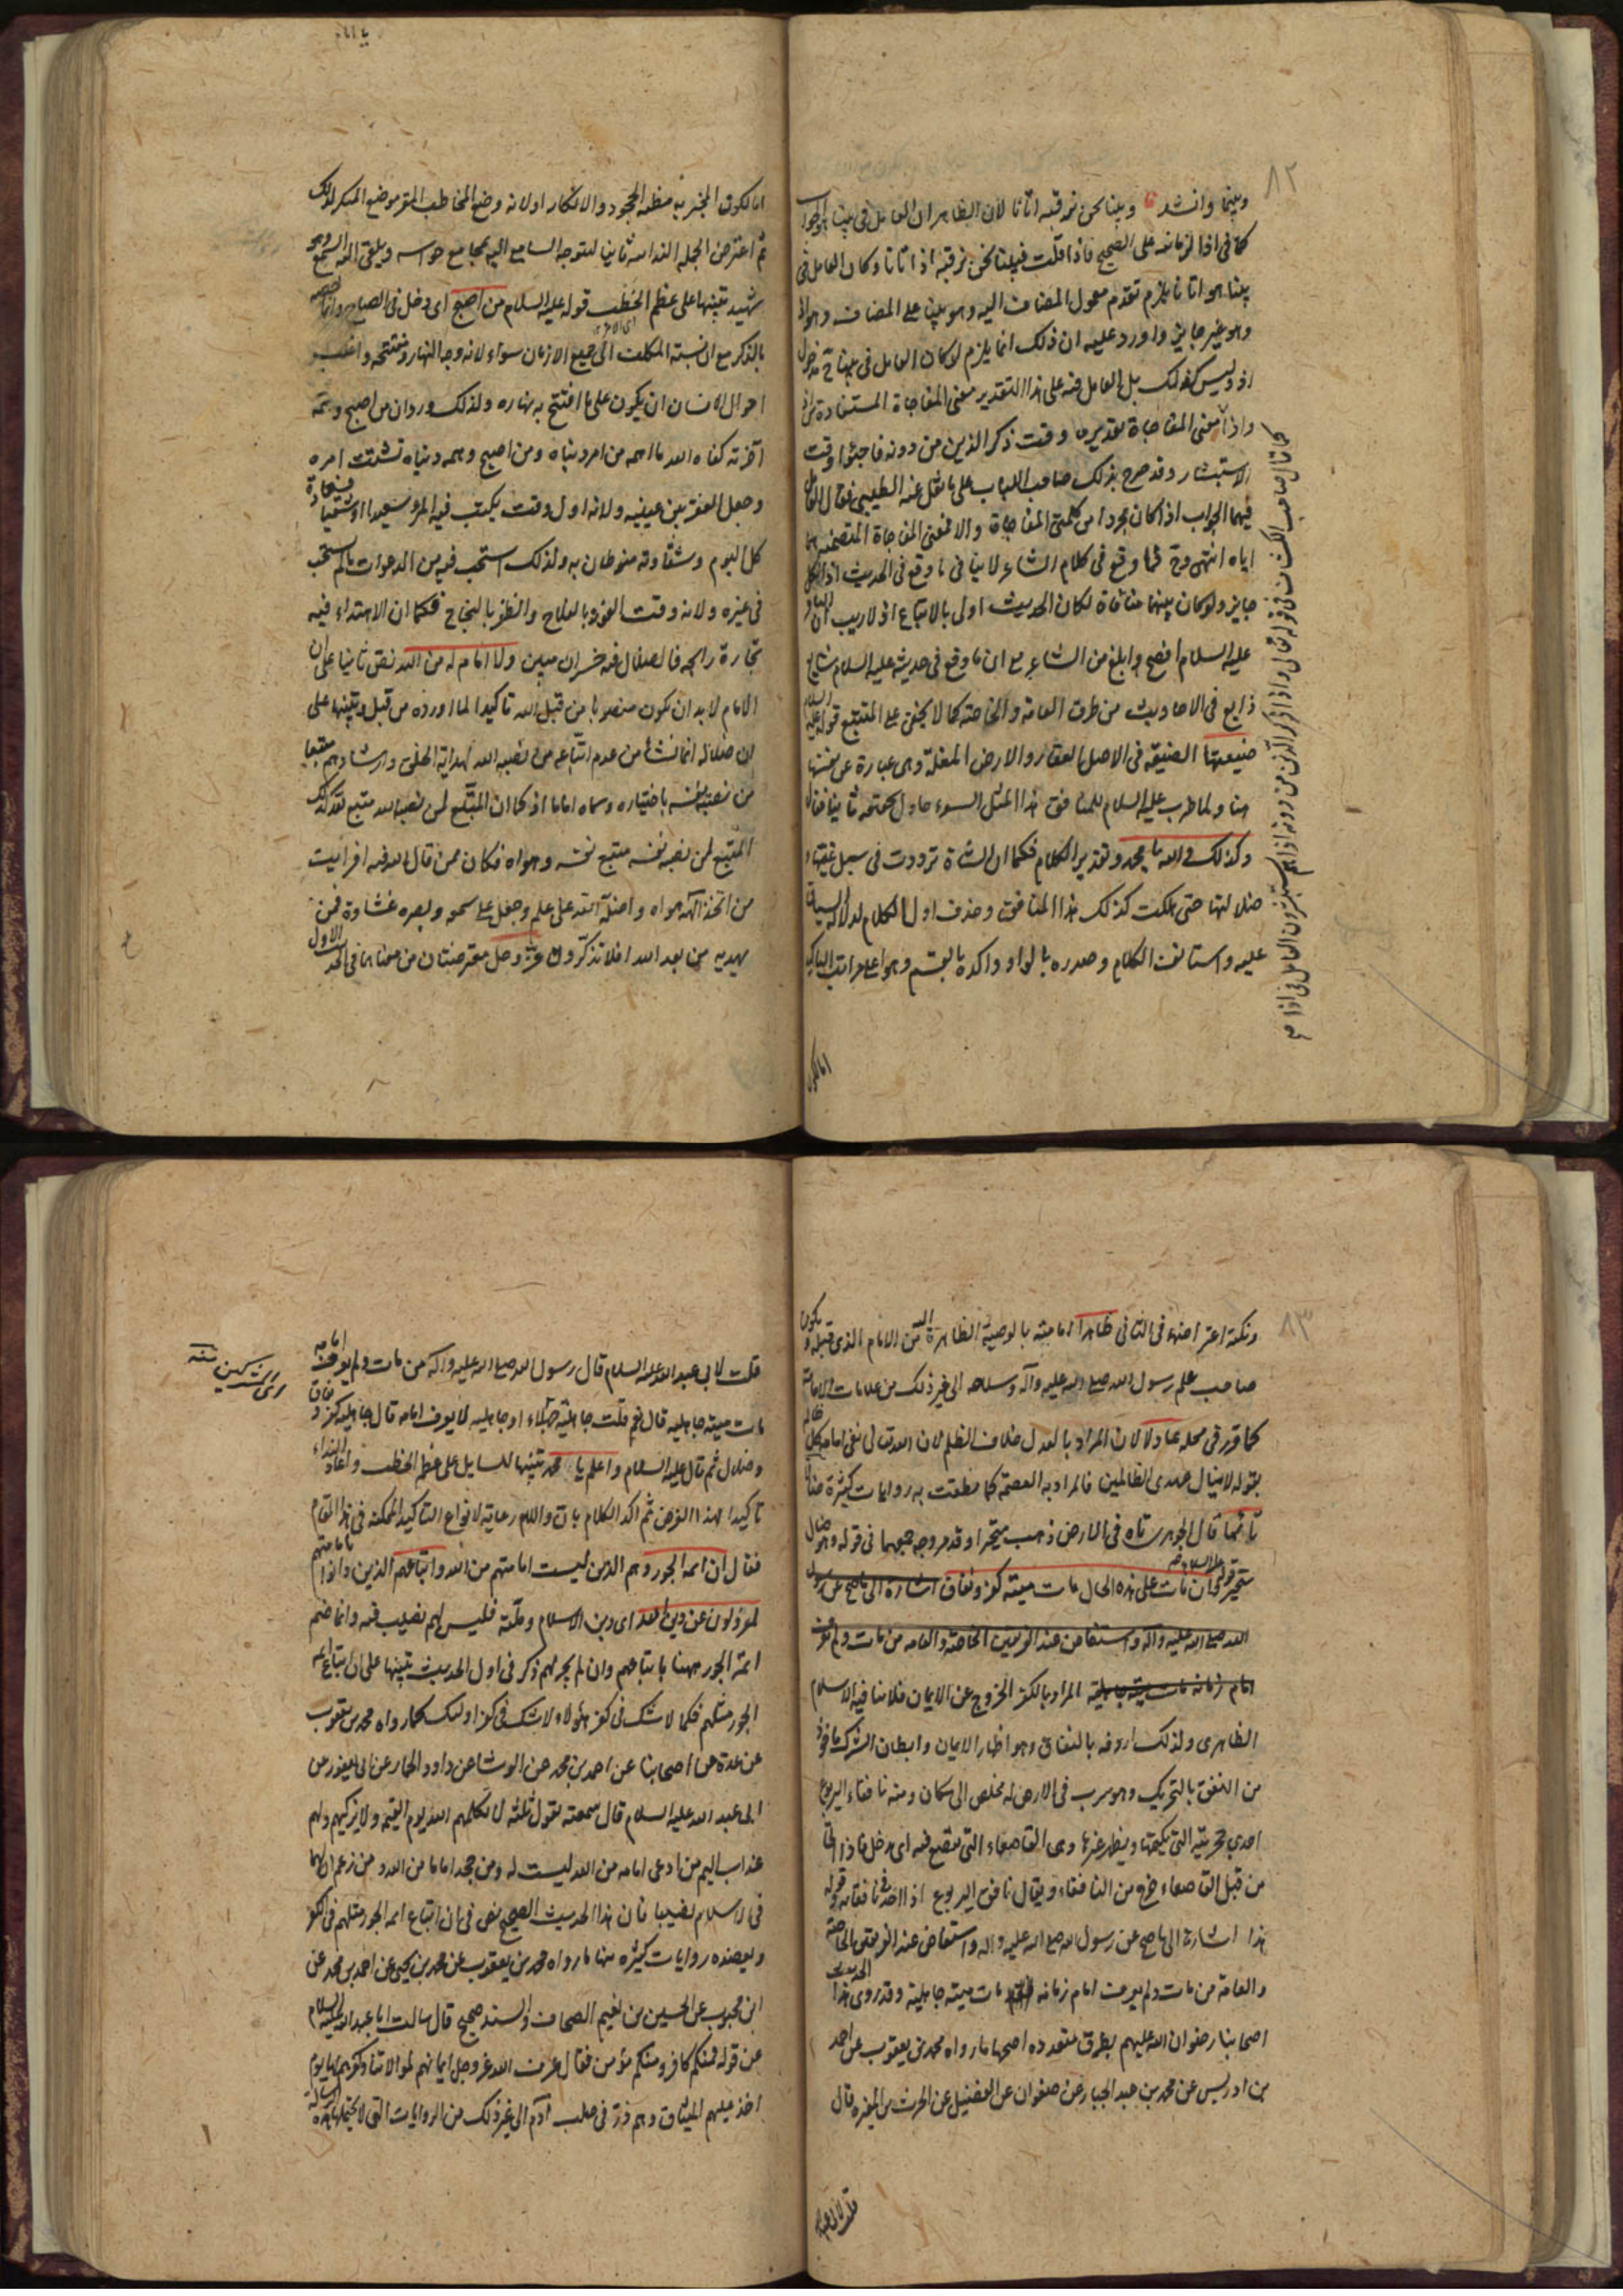 ٨٢
وبينما وانشد وبينا نحن نرقبه اتانا لان الظاهر ان العامل في بينا الجواب
كما في اذا الزمانيه على الصحيح فاذا قلت فبينا نحن نرقبه اذ اتانا وكان العامل في
بينا هو اتانا يلزم تقدم معمول المضاف اليه وهو بينا على المضاف وهو اذ
وهو غير جايز واورد عليه ان ذلك انما يلزم لو كان العامل في بينا مدخول
اذ وليس كذلك بل العامل فيه على هذا التقدير معنى المفاجاة المستفادة من اذ
واذا معنى المفاجاة تقديره وقت ذكر الذين من دونه فاجئوا وقت
الاستبشار وقد صرح بذلك صاحب اللباب على ما نقل عنه الطيبي فقال العامل
فيهما الجواب اذا كان مجردا من كلمتي المفاجاة والا فمعنى المفاجاة المتضمنة هما
اياه انتهى وح فما وقع في كلام الشاعر لا ينافي ما وقع في الحديث اذ الكل
جايز ولو كان بينهما منافاة لكان الحديث اولى بالاتباع اذ لا ريب ان الصادق
عليه السلام افصح وابلغ من الشاعر مع ان ما وقع في حديثه عليه السلام شايع
ذايع في الاحاديث من طرق العامة والخاصة كما لا يخفى على المتتبع قوله عليه السلام
ضيعتها الضيعة في الاصل العقار والارض المغلة وهي عبارة عن
هنا ولما ضرب عليه السلام للمنافق هذا المثل السوء حاول ثانيا فقال
وكذلك والله يا محمد وتقدير الكلام فكما ان الشاة ترددت في سبل
ضلالتها حتى هلكت كذلك هذا المنافق وحذف اول الكلام لدلالة السياق
عليه واستانف الكلام وصدره بالواو واكده بالقسم وهو اعلى مراتب التاكيد
اما لكون
كما قال صاحب الكشاف في قوله تعالى واذا ذكر الذين من دونه اذا هم يستبشرون العامل في اذا
اما لكون المخبر به مظنه الجحود والانكار اولانه وضع المخاطب المقر موضع المنكر لذلك
ثم اعترض الجمله الندائيه ثانيا لتوجه السامع اليه بمجامع حواسه ويلقى اليه السمع وهو
شهيد تنبيها على عظم الخطب قوله عليه السلام من اصبح اى دخل في الصباح وانما خصه
بالذكر مع ان نسبة المكلف الى جميع الازمان سواء لانه وجه النهار ومفتتحه واغلب
احوال الانسان ان يكون على ما افتتح به نهاره ولذلك ورد ان من اصبح وهمه
آخرته كفاه الله ما اهمه من امر دنياه ومن اصبح وهمه دنياه تشتت امره
وجعل الفقر بين عينيه ولانه اول وقت يكتب فيه المرء سعيدا او شقيا فسعادة
كل اليوم وشقاوته منوطان به ولذلك استحب فيه من الدعوات ما لم يستحب
في غيره ولانه وقت الفوز بالفلاح والظفر بالنجاح فكما ان الاهتداء فيه
تجارة رابحه فالضلال فيه خسران مبين ولا امام له من الله نص ثانيا على ان
الامام لابد ان يكون منصوبا من قبل الله تاكيدا لما اورده من قبل وتنبيها على
ان ضلاله انما نشأ من عدم اتباعه من نصبه الله لهداية الخلق وارشادهم متبعا
من نصبه نفسه باختياره وسماه اماما اذ كما ان المتبع لمن نصبه الله متبع لله كذلك
المتبع لمن نصبه نفسه متبع نفسه وهواه فكان ممن قال الله فيه افرايت
من اتخذ الهه هواه واضله الله على علم وجعل على سمعه وبصره غشاوة فمن
يهديه من بعد الله افلا تذكرون عز وجل معترضتان من معناهما في الحديث الاول
٨٣
ونكتة اعتراضه في الثاني ظاهرا امامته بالوصية الظاهرة اليه من الامام الذي قبله ويكون
صاحب علم رسول الله صلى الله عليه وآله وسلاحه الى غير ذلك من علامات الامامة
كما قرر في محله عادلا لان المراد بالعدل خلاف الظلم لان الله تعالى نفى امامة كل ظالم
بقوله لا ينال عهدي الظالمين فالمراد به العصمة كما نطقت به روايات كثيرة ضالا
تائها قال الجوهري تاه في الارض ذهب متحيرا وقد مر وجه جمعهما في قوله وهو ضال
متحير قوله عليه السلام وان مات على هذه الحال مات ميتة كفر ونفاق اشارة الى ما صح عن رسول
الله صلى الله عليه وآله واستفاض عند الفريقين الخاصة والعامه من مات ولم يعرف
امام زمانه مات ميتة جاهلية المراد بالكفر الخروج عن الايمان فلا ينافيه الاسلام
الظاهري ولذلك اردفه بالنفاق وهو اظهار الايمان وابطان الشرك ماخوذ
من النفق بالتحريك وهو سرب في الارض له مخلص الى مكان ومنه نافقاء اليربوع
احدي جحرتيه التي يكتمها ويظهر غيرها وهى القاصعاء التي يقصع فيه اى يدخل فاذا اتى
من قبل القاصعاء خرج من النافقاء ويقال نافق اليربوع اذا اخذ في نافقائه قوله
هذا اشارة الى ما صح عن رسول الله صلى الله عليه وآله واستفاض عند الفريقين الخاصة
والعامة من مات ولم يعرف امام زمانه مات ميتة جاهلية وقد روى هذا الحديث
اصحابنا رضوان الله عليهم بطرق متعدده اصحها ما رواه محمد بن يعقوب عن احمد
بن ادريس عن محمد بن عبد الجبار عن صفوان عن الفضيل عن الحرث بن المغيرة قال
قلت لابى عبد الله
قلت لابى عبد الله عليه السلام قال رسول الله صلى الله عليه وآله من مات ولم يعرف امامه
مات ميتة جاهليه قال نعم قلت جاهلية جهلاء او جاهليه لا يعرف امامه قال جاهلية كفر ونفاق
وضلال ثم قال عليه السلام واعلم يا محمد تنبيها للسايل على عظم الخطب واعاد النداء
تاكيدا لهذا الغرض ثم اكد الكلام بان واللام رعاية لانواع التاكيد الممكنه في هذا المقام
فقال ان ائمه الجور وهم الذين ليست امامتهم من الله واتباعهم الذين دانوا بامامتهم
لمعزولون عن دين الله اى دين الاسلام وملته فليس لهم نصيب فيه وانما ضم
ائمة الجور ههنا باتباعهم وان لم يجر لهم ذكر في اول الحديث تنبيها على ان اتباع ائمه
الجور مثلهم فكما لا شك في كفر هؤلاء لا شك في كفر اولئك كما رواه محمد بن يعقوب
عن عدة من اصحابنا عن احمد بن محمد عن الوشا عن داود الحمار عن ابن ابى يعفور عن
ابى عبد الله عليه السلام قال سمعته يقول ثلثه لا يكلمهم الله يوم القيمه ولا يزكيهم ولهم
عذاب اليم من ادعى امامه من الله ليست له ومن جحد اماما من الله ومن زعم ان لهما
في الاسلام نصيبا فان هذا الحديث الصحيح نص في ان اتباع ائمه الجور مثلهم في الكفر
ويعضده روايات كثيره منها ما رواه محمد بن يعقوب عن محمد بن يحيى عن احمد بن محمد عن
ابن محبوب عن الحسين بن نعيم الصحاف والسند صحيح قال سالت ابا عبد الله عليه السلام
عن قوله فمنكم كافر ومنكم مؤمن فقال عرف الله عز وجل ايمانهم بموالاتنا وكفرهم بها يوم
اخذ عليهم الميثاق وهم ذر في صلب آدم الى غير ذلك من الروايات التي لا تحتملها هذه الرسالة